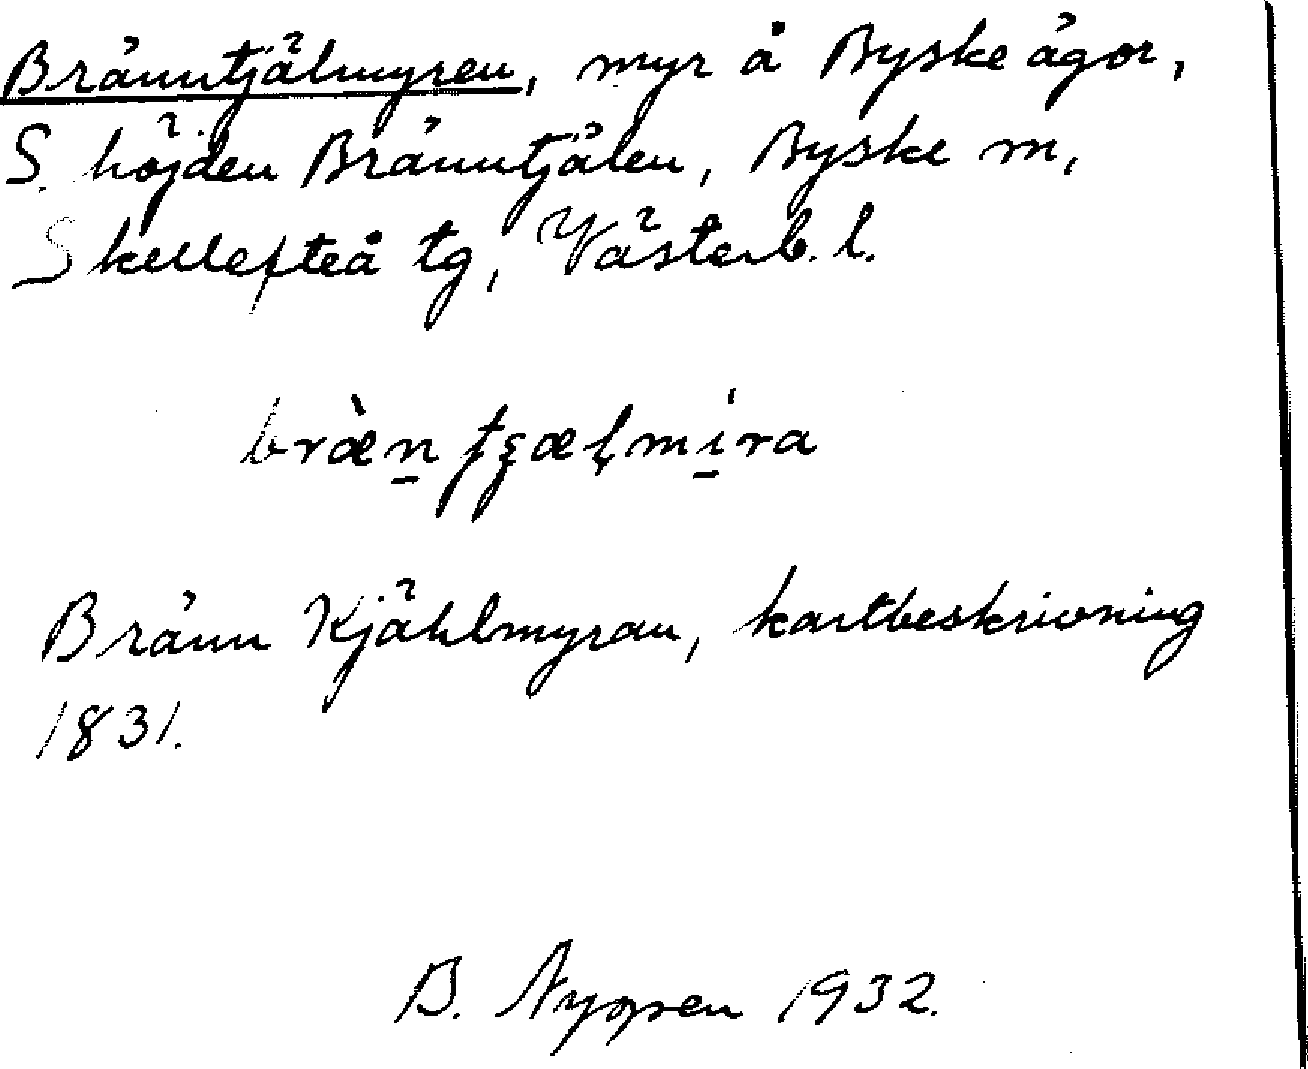 Bränntjälmyren, myr å Byske ägor,
S. höjden Bränntjälen, Byske sn,
Skellefteå tg, Västerb. l.
bræ̀n̠ tʂæḷmí̠ra
Bränn Kjählmyran, kartbeskrivning
1831.
B. 1932.